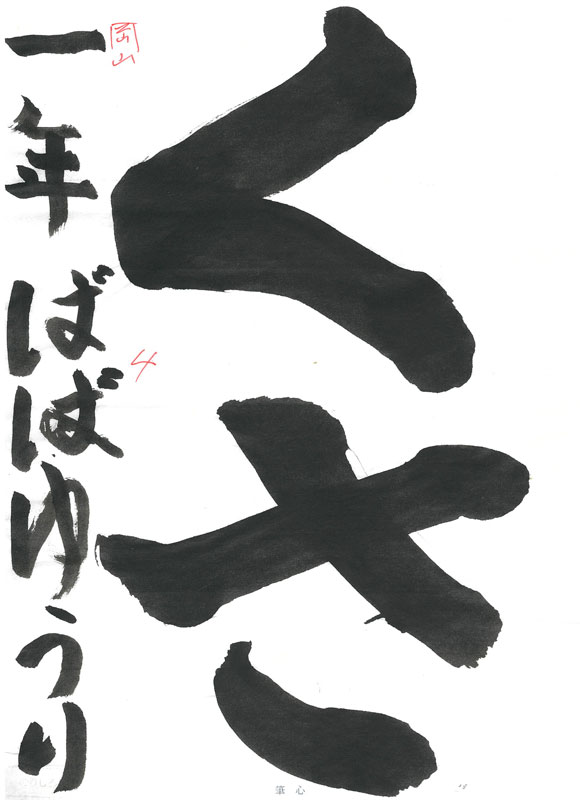 くさ
一年ばばゆうり
岡山
4
筆心